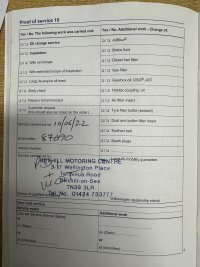 Proof of service 10
Yes / No The following work was carried out:
Oil change service
Inspection
With oil change
With extended scope of inspection
LongLife engine oil used
Body check
Repairs recommended
Customer request
(this should also be noted on the order)
Service carried out on: 10/06/22
at km/miles: 87090
Yes / No Additional work - Change of:
AdBlue®
Brake fluid
Diesel fuel filter
Gas filter
Gearbox oil: DSG®, ATF
Haldex coupling, oil
Air filter insert
Tyre filler bottle (sealant)
Dust and pollen filter insert
Toothed belt
Spark plugs
mobility guarantee
BEXHILL MOTORING CENTRE
Wellington Place
Terminus Road
Bexhill-on-Sea
TN39 3LR
Tel. No. 01424 733777
Volkswagen dealership stamp
Your next service:
Service event
Additional work
or